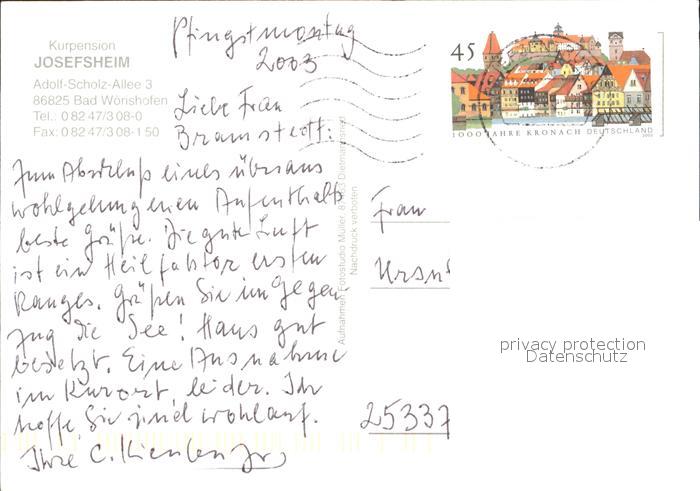 Kurpension
JOSEFSHEIM
Adolf-Scholz-Allee 3
86825 Bad Wörishofen
Tel.: 0 82 47/3 08-0
Fax: 0 82 47/3 08-1 50
Pfingstmontag
2003
Liebe Frau
Bramstedt:
Zum Abschluß eines überaus
wohlgelungenen Aufenthalts
beste Grüße. Die gute Luft
ist ein Heilfaktor ersten
Ranges. Grüßen Sie im Gegen
zug die See! Haus gut
besetzt. Eine Ausnahme
im Kurort, leider. Ich
hoffe, Sie sind wohlauf.
Ihre C.
Aufnahmen Fotostudio Müller
Nachdruck verboten
45
1000 JAHRE KRONACH DEUTSCHLAND
2003
Frau
25337
privacy protection
Datenschutz